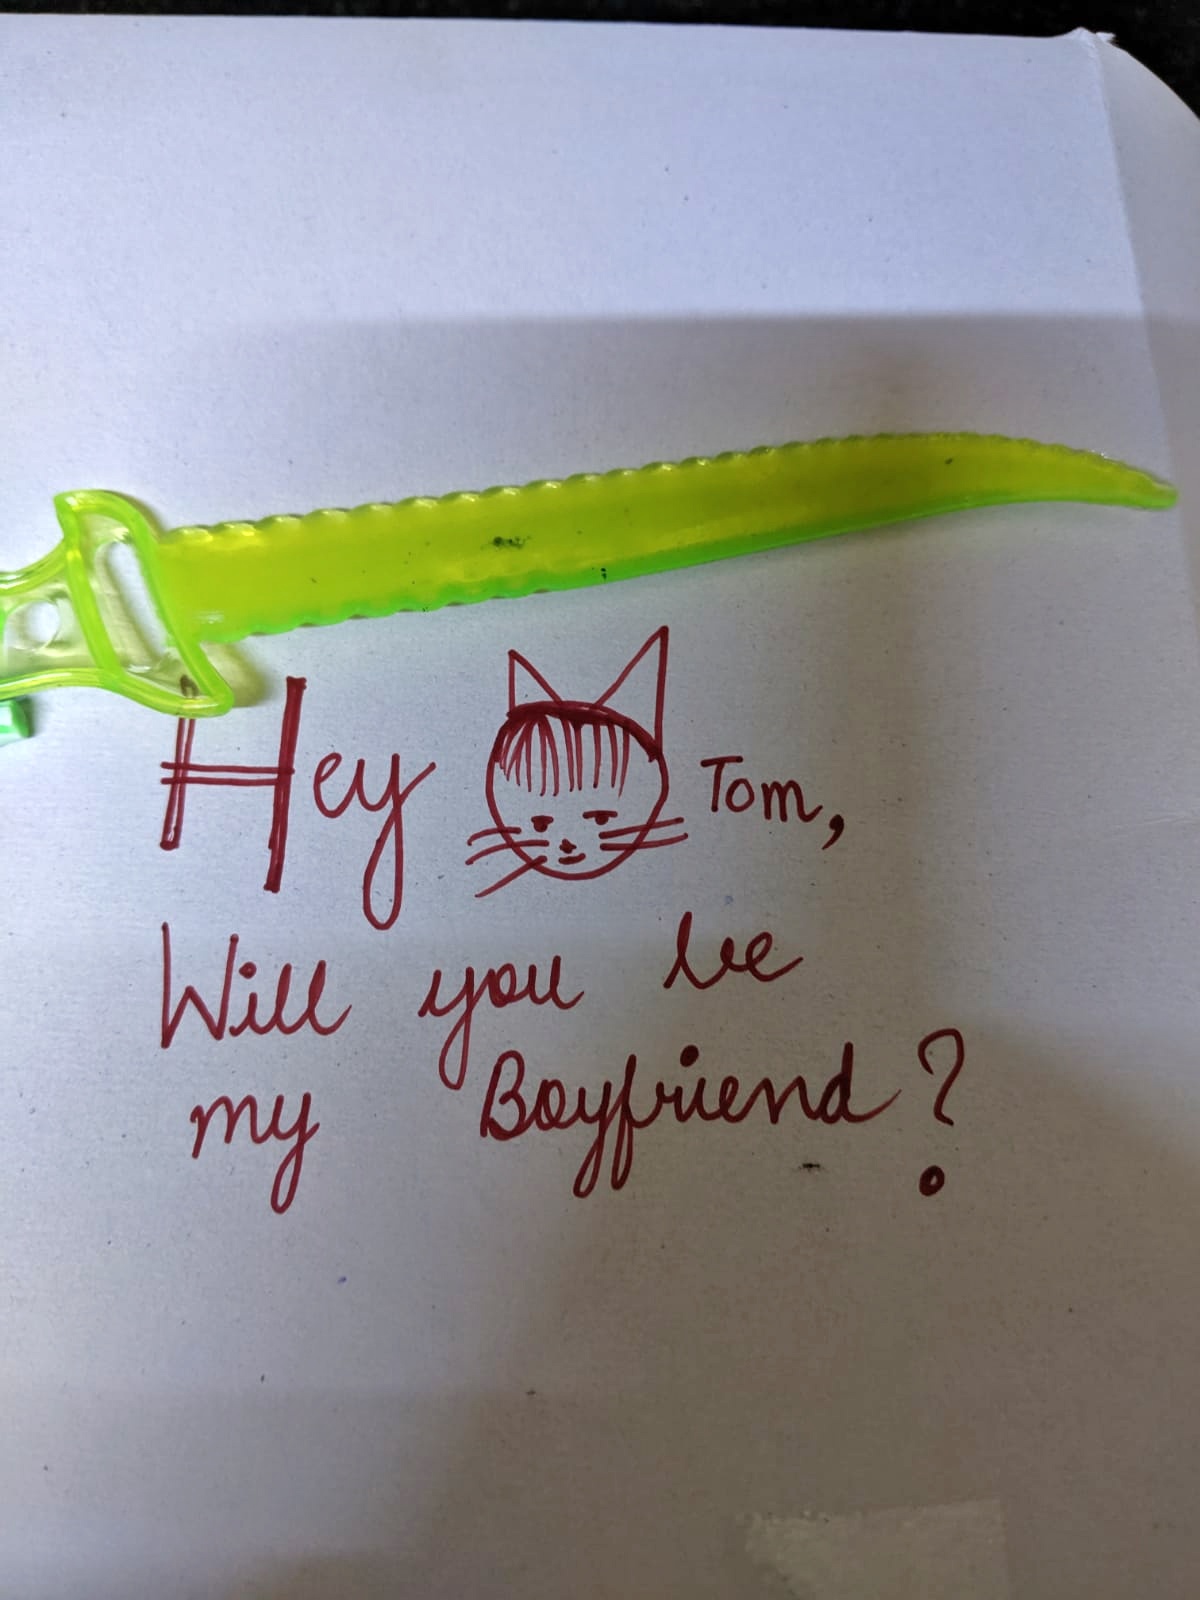 Hey Tom,
Will you be
my Boyfriend?